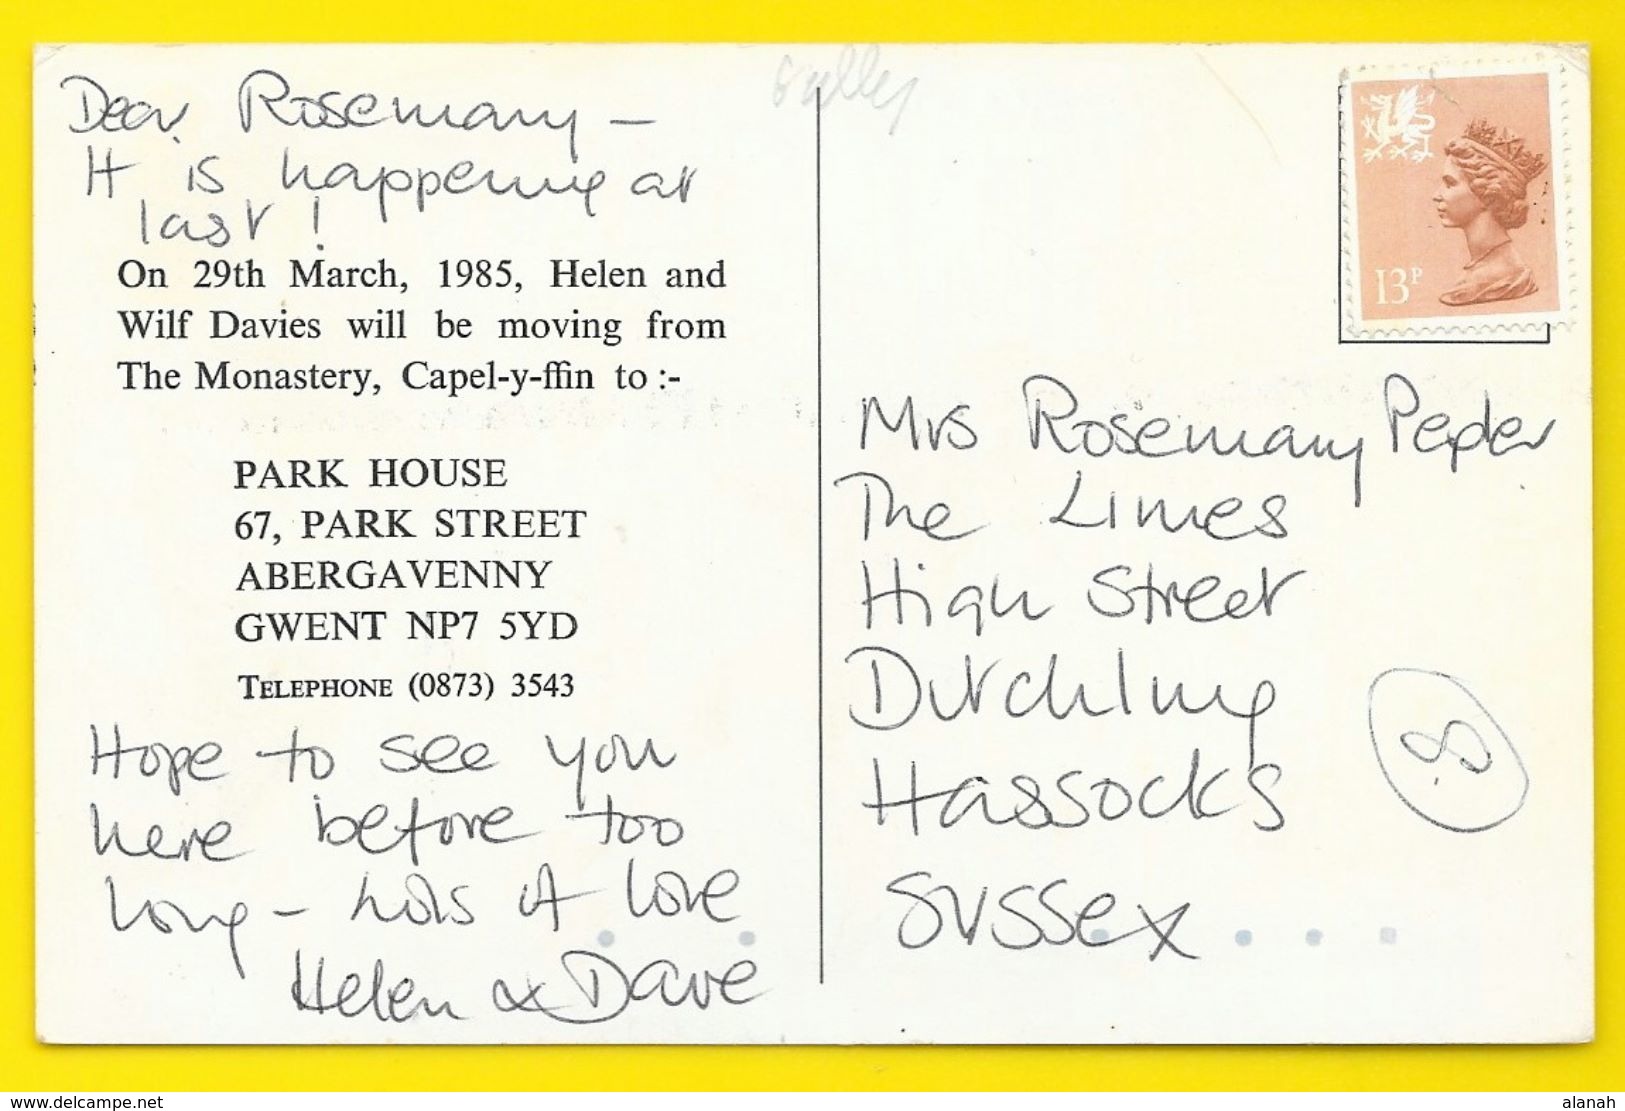 Dear Rosemary –
It is happening at
last!
On 29th March, 1985, Helen and
Wilf Davies will be moving from
The Monastery, Capel-y-ffin to :-
PARK HOUSE
67, PARK STREET
ABERGAVENNY
GWENT NP7 5YD
TELEPHONE (0873) 3543
Hope to see you
here before too
long – lots of love
Helen & Dave
13P
Mrs Rosemary
The Limes
High Street
Ditchling
Hassocks
Sussex
8
www.delcampe.net
alanah